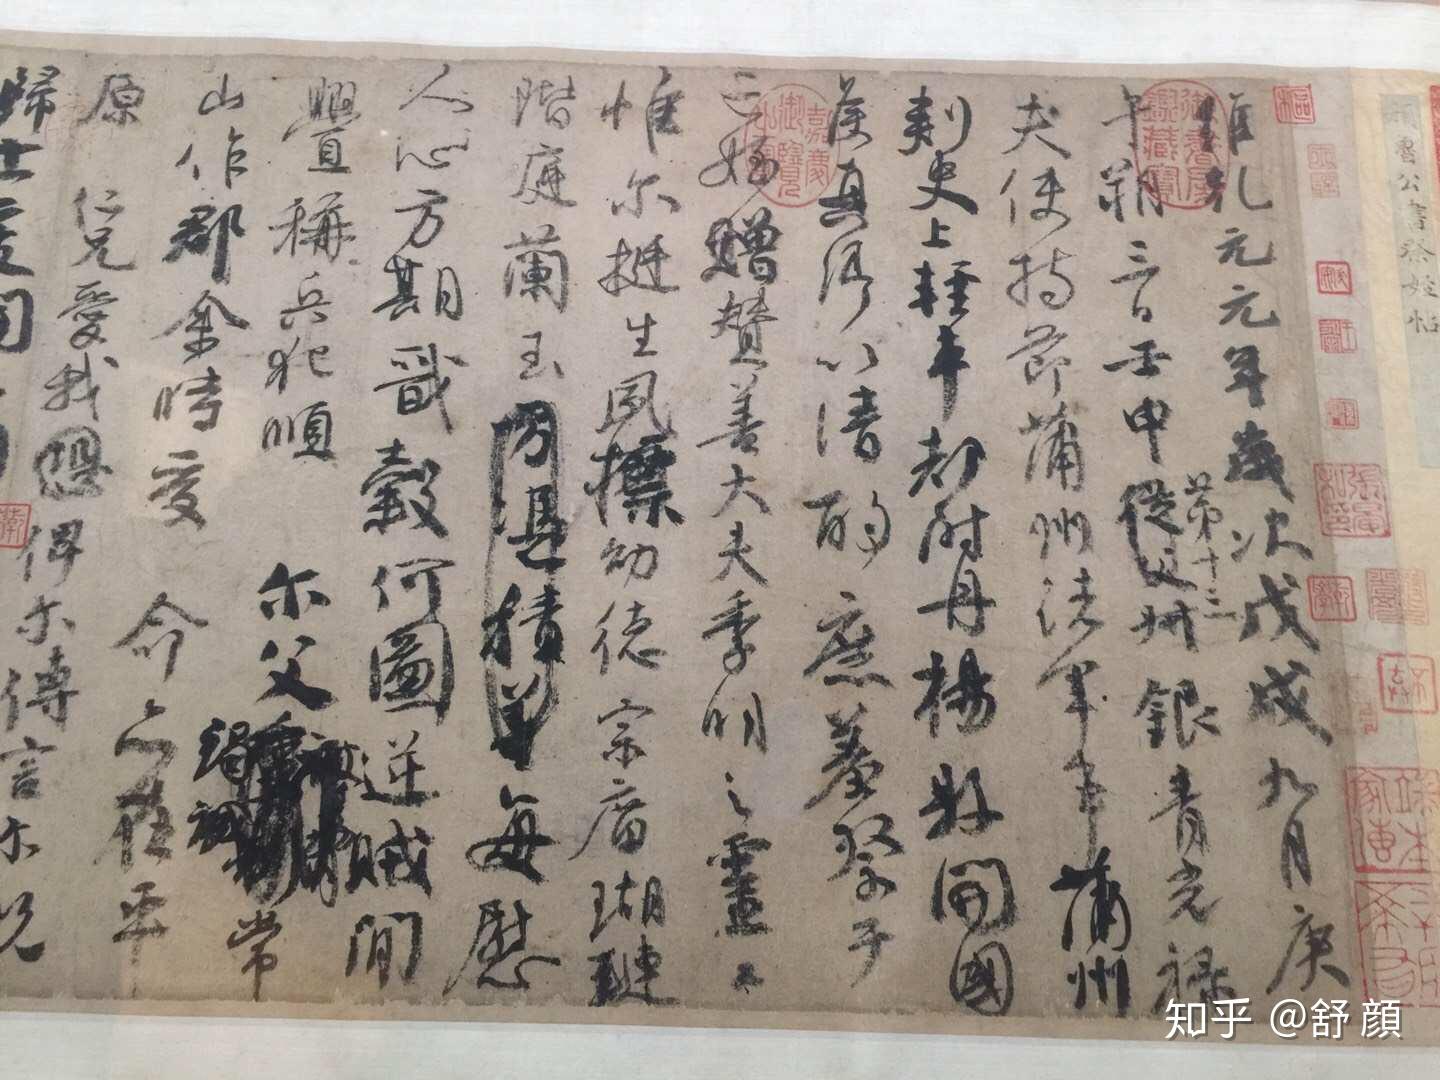 顏魯公書祭姪帖
維乾元元年歲次戊戌九月庚
午朔三日壬申第十三從父叔銀青光祿
夫使持節蒲州諸軍事蒲州
刺史上輕車都尉丹楊縣開國
侯真卿以清酌庶羞祭于
亡姪贈贊善大夫季明之靈曰
惟尔挺生夙標幼德宗廟瑚璉
階庭蘭玉方憑積善每慰
人心方期戩穀何圖逆賊閒
釁稱兵犯順尔父竭誠常
山作郡余時受命亦在平
原仁兄愛我恐俾尔傳言尔既
歸止爰開
御書房鑒藏寶
嘉慶御覽之寶
知乎 @舒顔